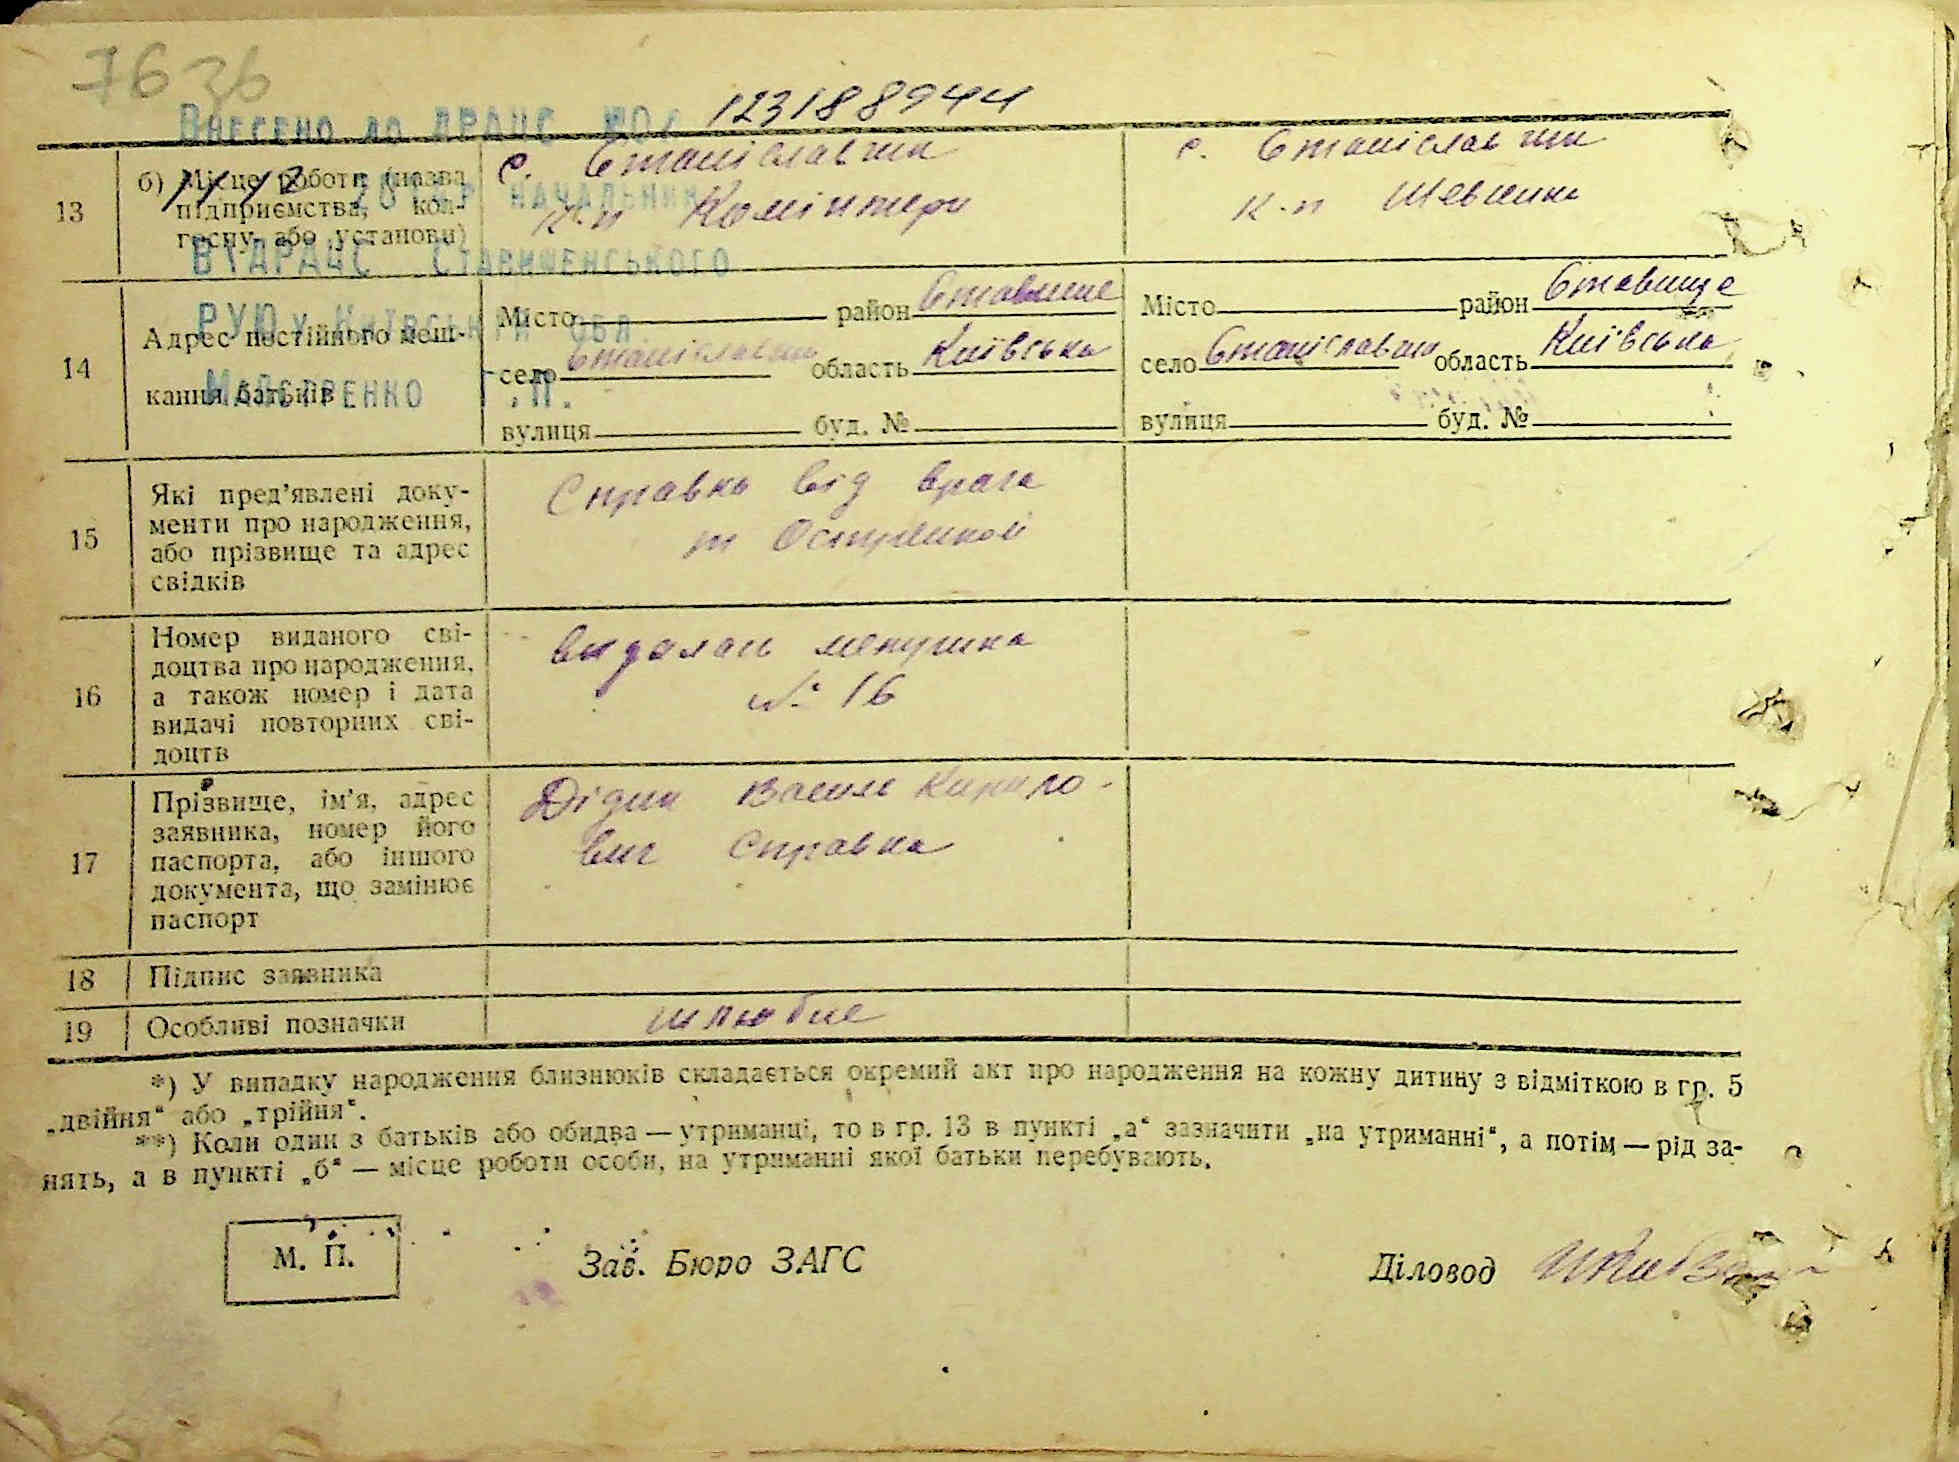 76 зв
Внесено до ДРАЦС 123188944
13
б) Місце роботи (назва
підприємства, кол-
госпу або установи)
с. Станіславчик
к-п Комінтерн
с. Станіславчик
к-п Шевченка
20 р. Начальник
ВДРАЦС Ставищенського
РУЮ у Київській обл
Г.П.
14
Адрес постійного меш-
кання батьків
Місто район Ставище
село Станіславчик область Київська
вулиця буд. №
Місто район Ставище
село Станіславчик область Київська
вулиця буд. №
15
Які пред’явлені доку-
менти про народження,
або прізвище та адрес
свідків
Справка від врача
т
16
Номер виданого сві-
доцтва про народження,
а також номер і дата
видачі повторних сві-
доцтв
видалась
№ 16
17
Прізвище, ім’я, адрес
заявника, номер його
паспорта, або іншого
документа, що замінює
паспорт
Дідик Василь Кирило-
вич справка
18
Підпис заявника
19
Особливі позначки
шлюбне
*) У випадку народження близнюків складається окремий акт про народження на кожну дитину з відміткою в гр. 5
„двійня“ або „трійня“.
**) Коли один з батьків або обидва — утриманці, то в гр. 13 в пункті „а“ зазначити „на утриманні“, а потім — рід за-
нять, а в пункті „б“ — місце роботи особи, на утриманні якої батьки перебувають.
М. П.
Зав. Бюро ЗАГС
Діловод